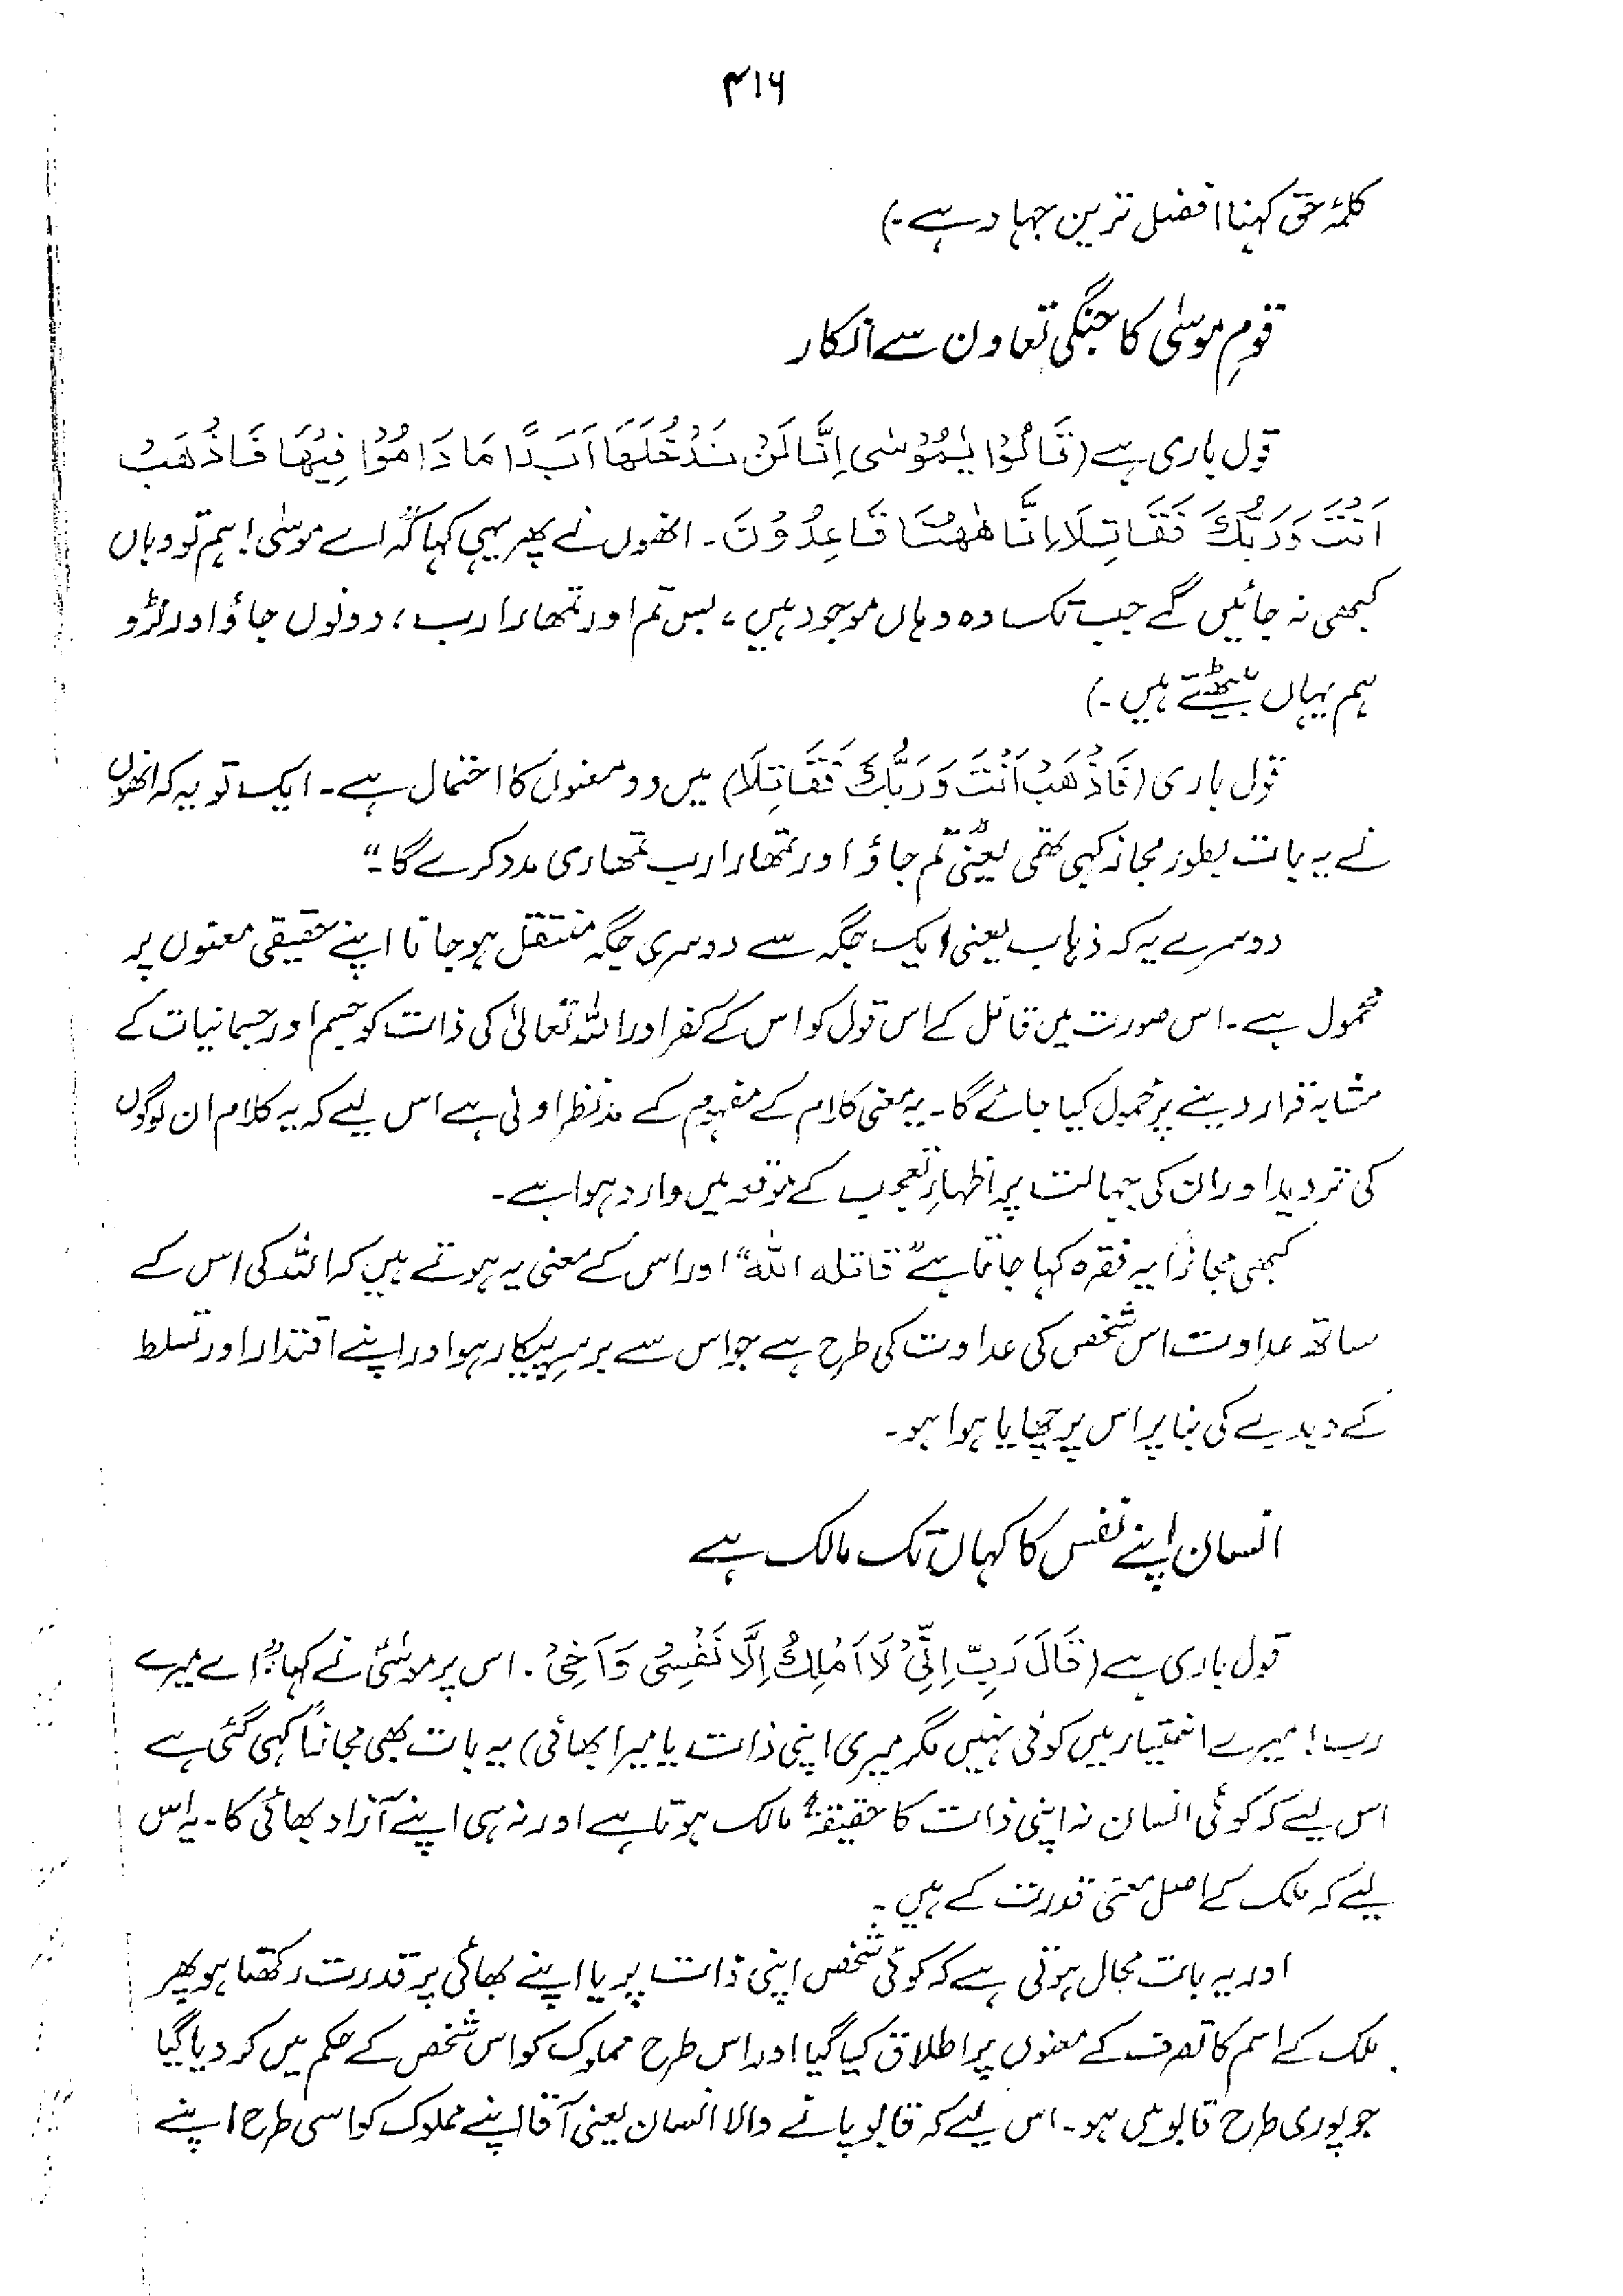 ۴۱۶
کلمۂ حق کہنا افضل ترین جہاد ہے۔)
قومِ موسٰی کا جنگی تعاون سے انکار
قول باری ہے (قَالُوْا یٰمُوْسٰی اِنَّا لَنْ نَدْخُلَھَا اَبَدًا مَا دَامُوْا فِیْھَا فَاذْھَبْ
اَنْتَ وَرَبُّكَ فَقَاتِلَا اِنَّا ھٰھُنَا قَاعِدُوْنَ۔ انھوں نے پھر یہی کہا کہ "اے موسٰی! ہم تو وہاں
کبھی نہ جائیں گے جب تک وہ وہاں موجود ہیں، بس تم اور تمھارا رب، دونوں جاؤ اور لڑو
ہم یہاں بیٹھتے ہیں۔)
قول باری (فَاذْھَبْ اَنْتَ وَرَبُّكَ فَقَاتِلَا) میں دو معنوں کا احتمال ہے۔ ایک تو یہ کہ انھوں
نے یہ بات بطور مجاز کہی تھی یعنی "تم جاؤ اور تمھارا رب تمھاری مدد کرے گا۔"
دوسرے یہ کہ ذہاب یعنی ایک جگہ سے دوسری جگہ منتقل ہو جانا اپنے حقیقی معنوں پر
محمول ہے۔ اس صورت میں قائل کے اس قول کو اس کے کفر اور اللہ تعالیٰ کی ذات کو جسم اور جسمانیات کے
مشابہ قرار دینے پر محمول کیا جائے گا۔ یہ معنی کلام کے مفہوم کے مدنظر اولیٰ ہے اس لیے کہ یہ کلام ان لوگوں
کی تردید اور ان کی جہالت پر اظہارِ تعجب کے موقعہ میں وارد ہوا ہے۔
کبھی مجازاً یہ فقرہ کہا جاتا ہے "قاتله الله" اور اس کے معنی یہ ہوتے ہیں کہ اللہ کی اس کے
ساتھ عداوت اس شخص کی عداوت کی طرح ہے جو اس سے برسرِ پیکار ہو اور اپنے اقتدار اور تسلط
کے دبدبے کی بنا پر اس پر چھایا ہوا ہو۔
انسان اپنے نفس کا کہاں تک مالک ہے
قول باری ہے (قَالَ رَبِّ اِنِّیْ لَا اَمْلِكُ اِلَّا نَفْسِیْ وَاَخِیْ۔ اس پر موسٰیؑ نے کہا: "اے میرے
رب! میرے اختیار میں کوئی نہیں مگر میری اپنی ذات یا میرا بھائی) یہ بات بھی مجازاً کہی گئی ہے
اس لیے کہ کوئی انسان نہ اپنی ذات کا حقیقۃً مالک ہوتا ہے اور نہ ہی اپنے آزاد بھائی کا۔ یہ اس
لیے کہ ملک کے اصل معنی قدرت کے ہیں۔
اور یہ بات محال ہوتی ہے کہ کوئی شخص اپنی ذات پر یا اپنے بھائی پر قدرت رکھتا ہو پھر
ملک کے اسم کا تصرف کے معنوں پر اطلاق کیا گیا اور اس طرح مملوک کو اس شخص کے حکم میں کر دیا گیا
جو پوری طرح قابو میں ہو۔ اس لیے کہ قابو پانے والا انسان یعنی آقا اپنے مملوک کو اسی طرح اپنے